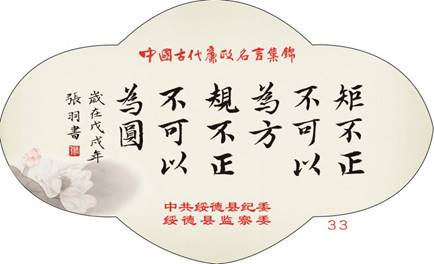 中國古代廉政名言集錦
矩不正
不可以
為方
規不正
不可以
為圓
歲在戊戌年
張羽書
中共绥德县纪委
绥德县监察委
33